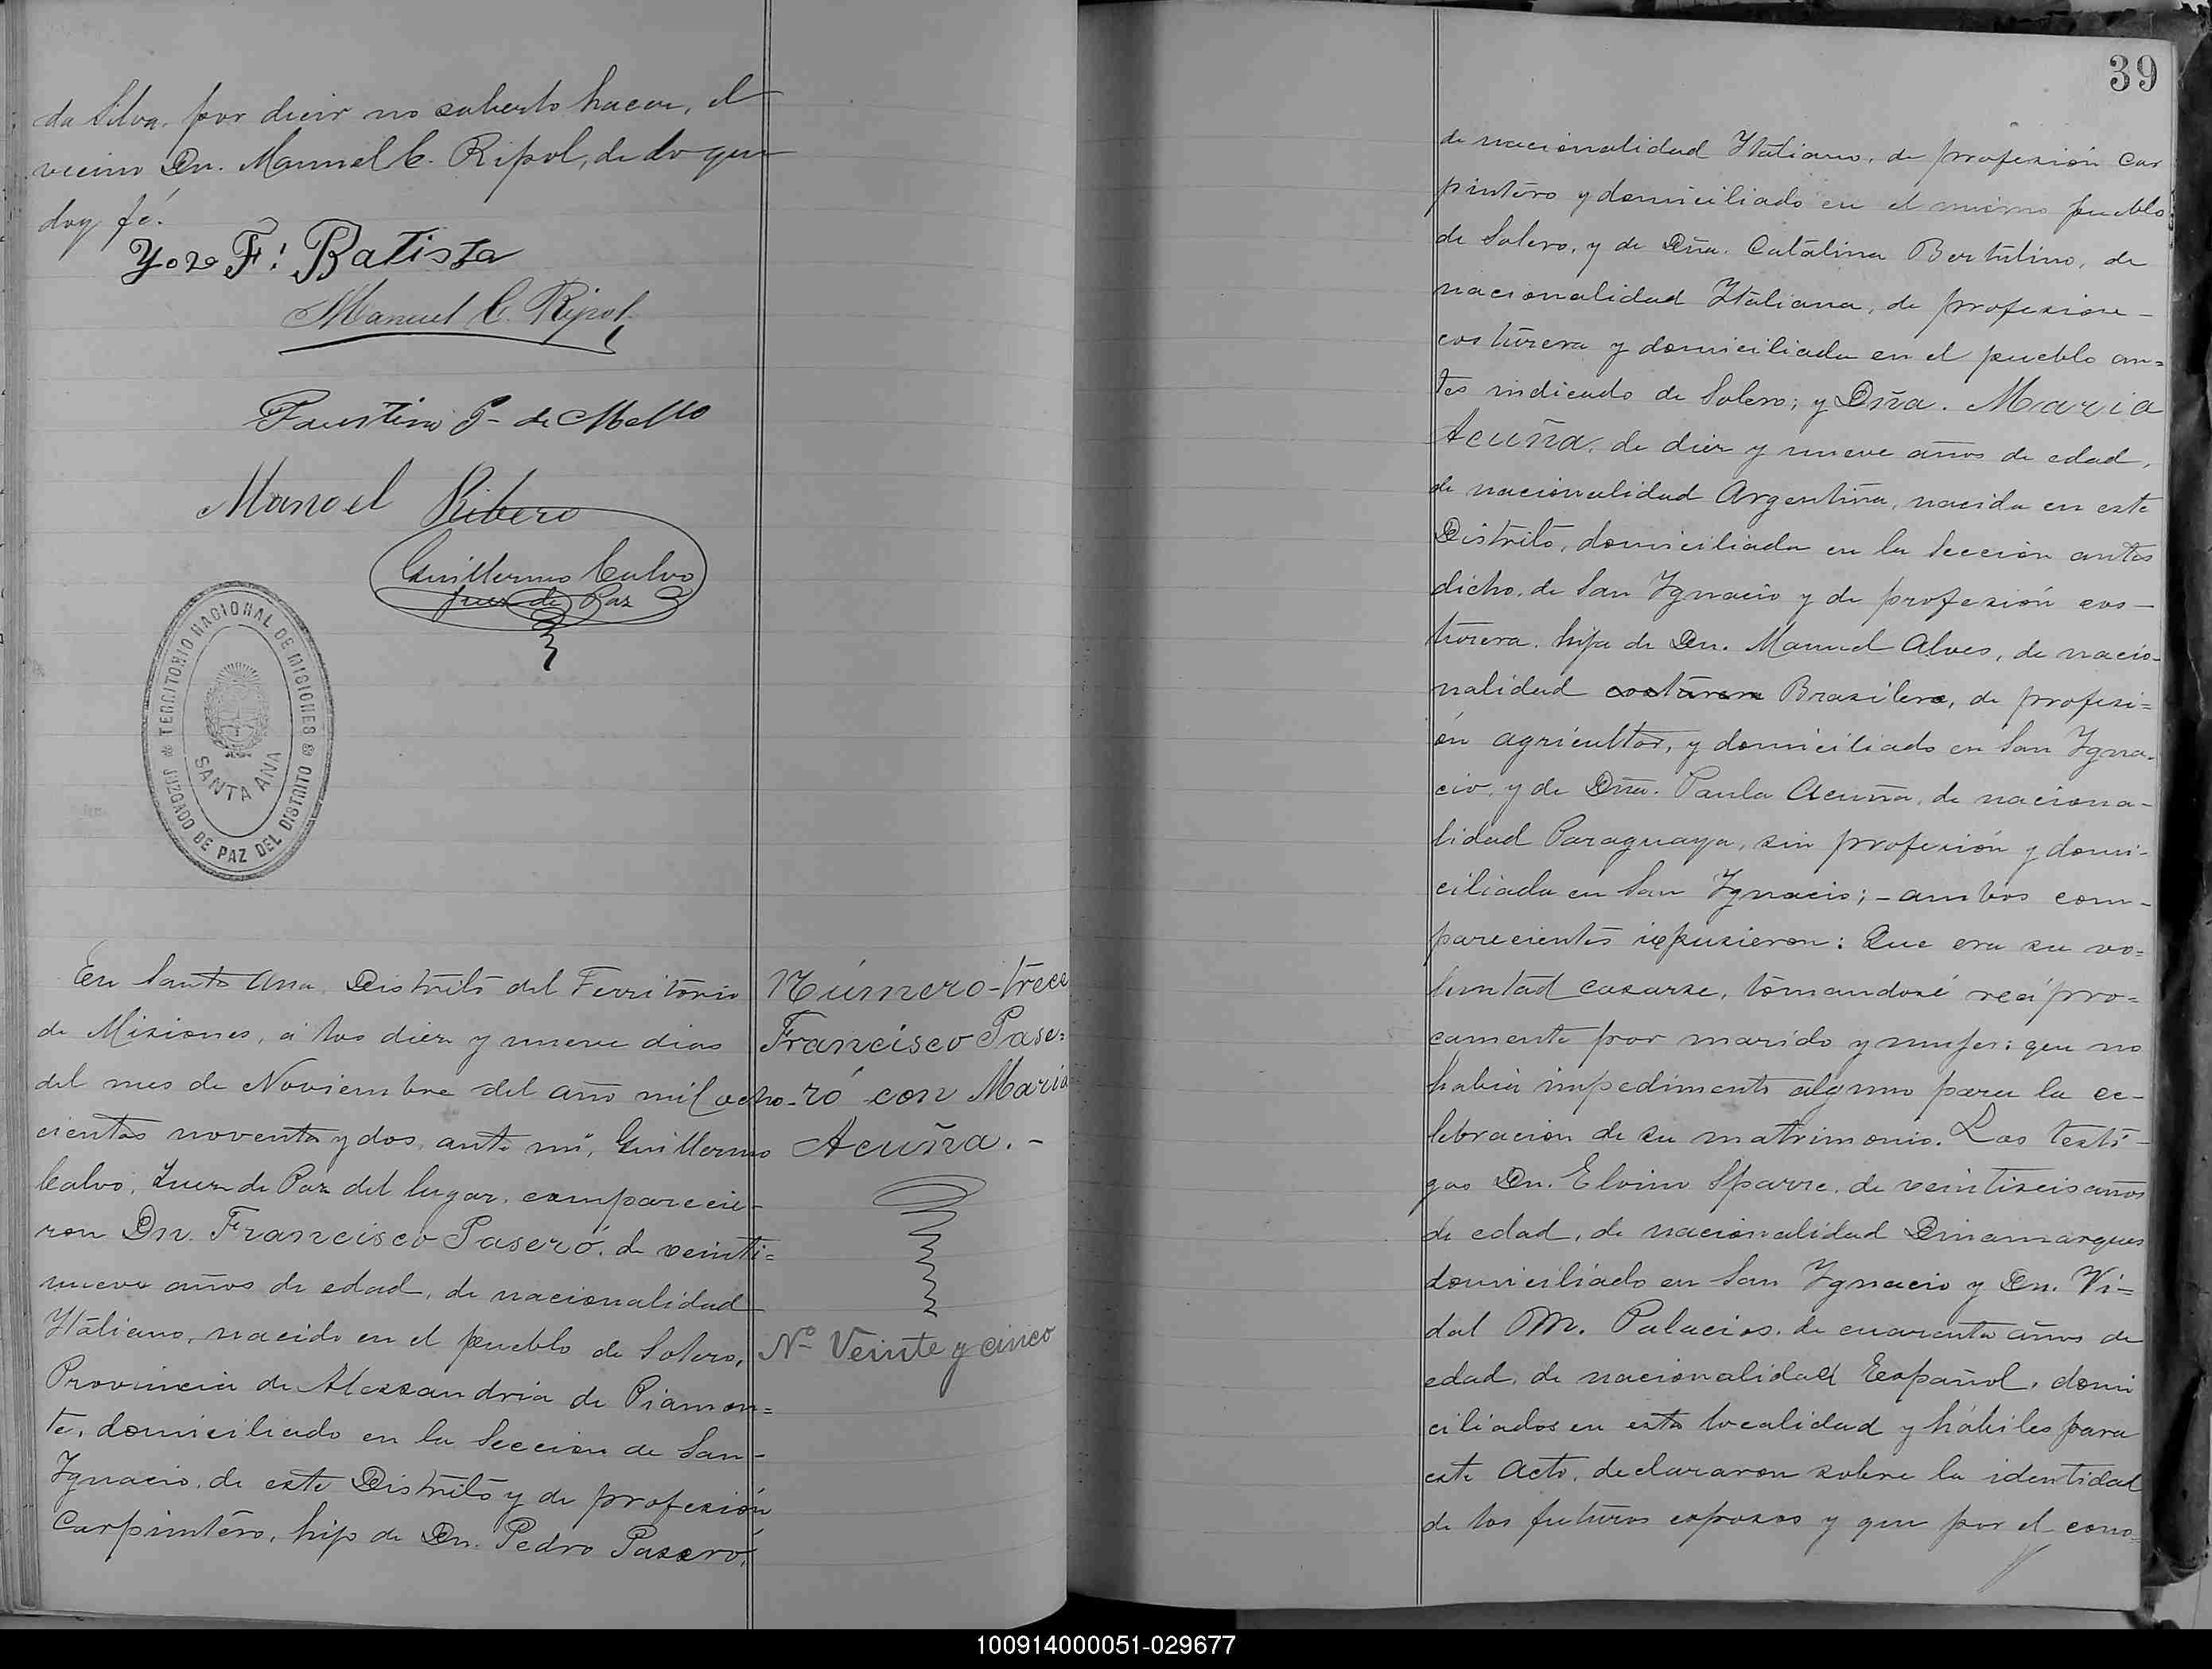 da Silva, por decir no saberlo hacer, el
vecino Dn. Manuel C. Ripol, de lo que
doy fé.
Yoze F! Batista
Manuel C. Ripol
Faustino P- de Mello
Manoel Ribero
Guillermo Calvo
Juez de Paz
TERRITORIO NACIONAL DE MISIONES
JUZGADO DE PAZ DEL DISTRITO
SANTA ANA
En Santa Ana, Distrito del Territorio
de Misiones, á los diez y nueve dias
del mes de Noviembre del año mil ocho-
cientos noventa y dos, ante mi, Guillermo
Calvo, Juez de Paz del lugar, comparecie-
ron Dn. Francisco Paseró, de veinti=
nueve años de edad, de nacionalidad
Ytaliano, nacido en el pueblo de Solero,
Provincia de Alessandria de Piamon=
te, domiciliado en la Seccion de San-
Ygnacio, de este Distrito y de profesión
Carpintero, hijo de Dn. Pedro Paseró,
Número-trece
Francisco Pase=
ró con Maria
Acuña.-
No Veinte y cinco
39
de nacionalidad Ytaliano, de profesión car
pintero y domiciliado en el mismo pueblo
de Solero, y de Dña. Catalina Bertulino, de
nacionalidad Ytaliana, de profesion-
costurera y domiciliada en el pueblo an=
tes indicado de Solero; y Dña. Maria
Acuña, de diez y nueve años de edad,
de nacionalidad Argentina, nacida en este
Distrito, domiciliada en la Seccion antes
dicho, de San Ygnacio y de profesión cos-
turera, hija de Dn. Manuel Alves, de nacio-
nalidad costurera Brasilero, de profesi=
ón agricultor, y domiciliado en San Ygna-
cio, y de Dña. Paula Acuña, de naciona-
lidad Paraguaya, sin profesión y domi-
ciliada en San Ygnacio;- ambos com-
parecientes expusieron: Que era su vo=
luntad casarse, tomandosé recípro=
camente por marido y mujer: que no
habia impedimento alguno para la ce-
lebracion de su matrimonio. Los testi-
gos Dn. Elvino Sparre, de veintiseis años
de edad, de nacionalidad Dinamarques
domiciliado en San Ygnacio y Dn. Vi=
dal M. Palacios, de cuarenta años de
edad, de nacionalidad Español, domi
ciliados en esta localidad y hábiles para
este Acto, declararon sobre la identidad
de los futuros esposos y que por el cono=
100914000051-029677